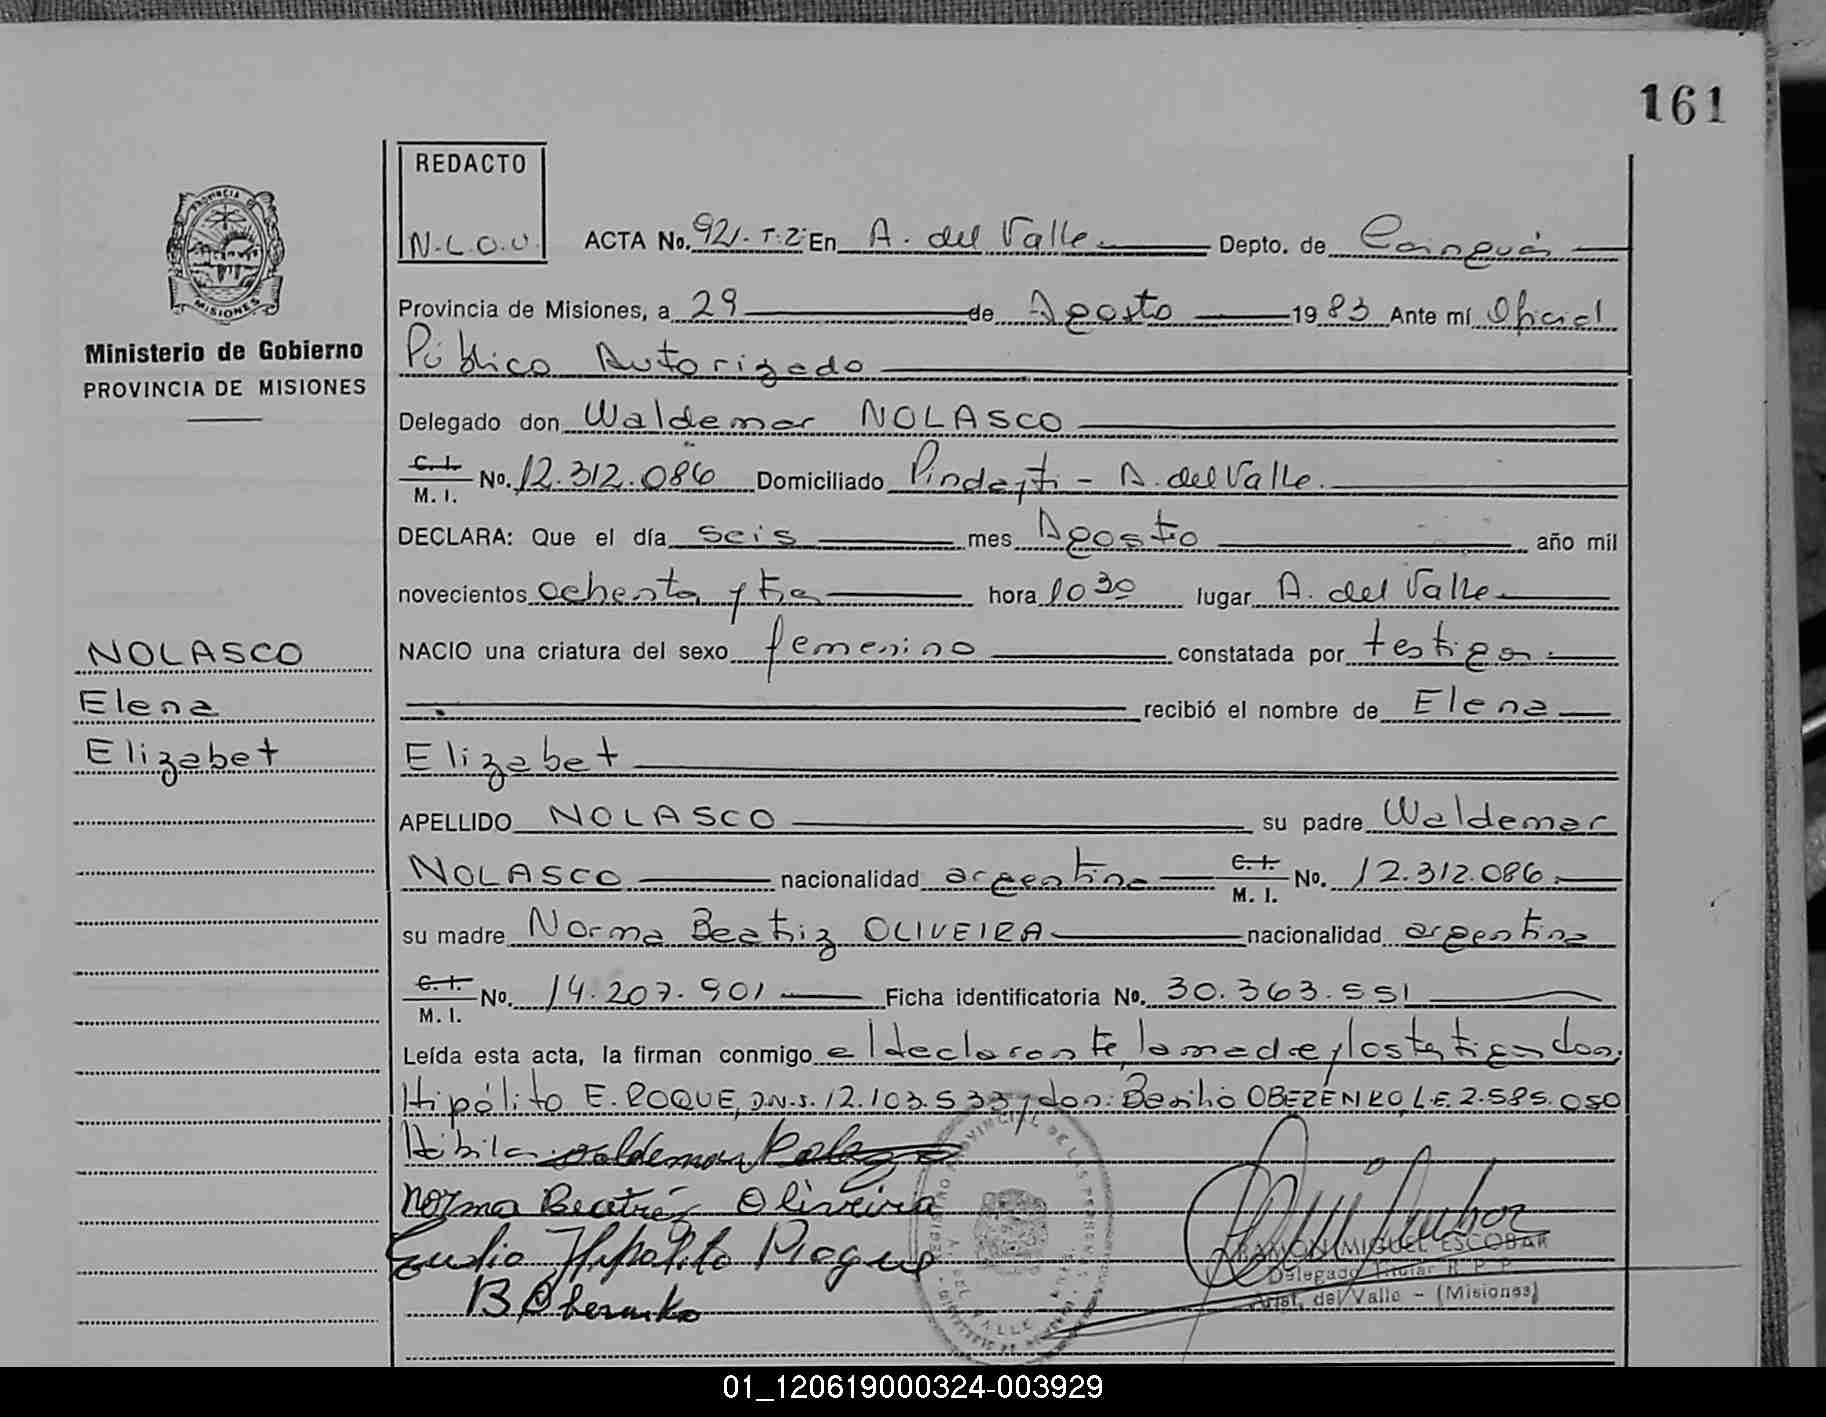 161
REDACTO
N.L.O.U.
ACTA No. 921-T.2: En A. del Valle Depto. de Cainguás
Provincia de Misiones, a 29 de Agosto 1983 Ante mí Oficial
Público Autorizado
Ministerio de Gobierno
PROVINCIA DE MISIONES
Delegado don Waldemar NOLASCO
C. I. M. I. No. 12.312.086 Domiciliado Pindayti - A. del Valle.
DECLARA: Que el día seis mes Agosto año mil
novecientos ochenta y tres hora 10 30 lugar A. del Valle
NOLASCO
NACIO una criatura del sexo femenino constatada por testigos.
Elena
recibió el nombre de Elena
Elizabet
Elizabet
APELLIDO NOLASCO su padre Waldemar
NOLASCO nacionalidad argentina C. I. M. I. No. 12.312.086.
su madre Norma Beatriz OLIVEIRA nacionalidad argentina
C. I. M. I. No. 14.207.901 Ficha identificatoria No. 30.363.551
Leída esta acta, la firman conmigo el declarante, la madre y los testigos don:
Hipólito E. ROQUE, D.N.I. 12.103.533 y don: Basilio OBEZENKO, L.E. 2.585.050
Hábiles Waldemar
Norma Beatriz Oliveira
Hipolito Roque
RAMON MIGUEL ESCOBAR
Delegado Titular R. P. P.
Arist. del Valle - (Misiones)
01_120619000324-003929